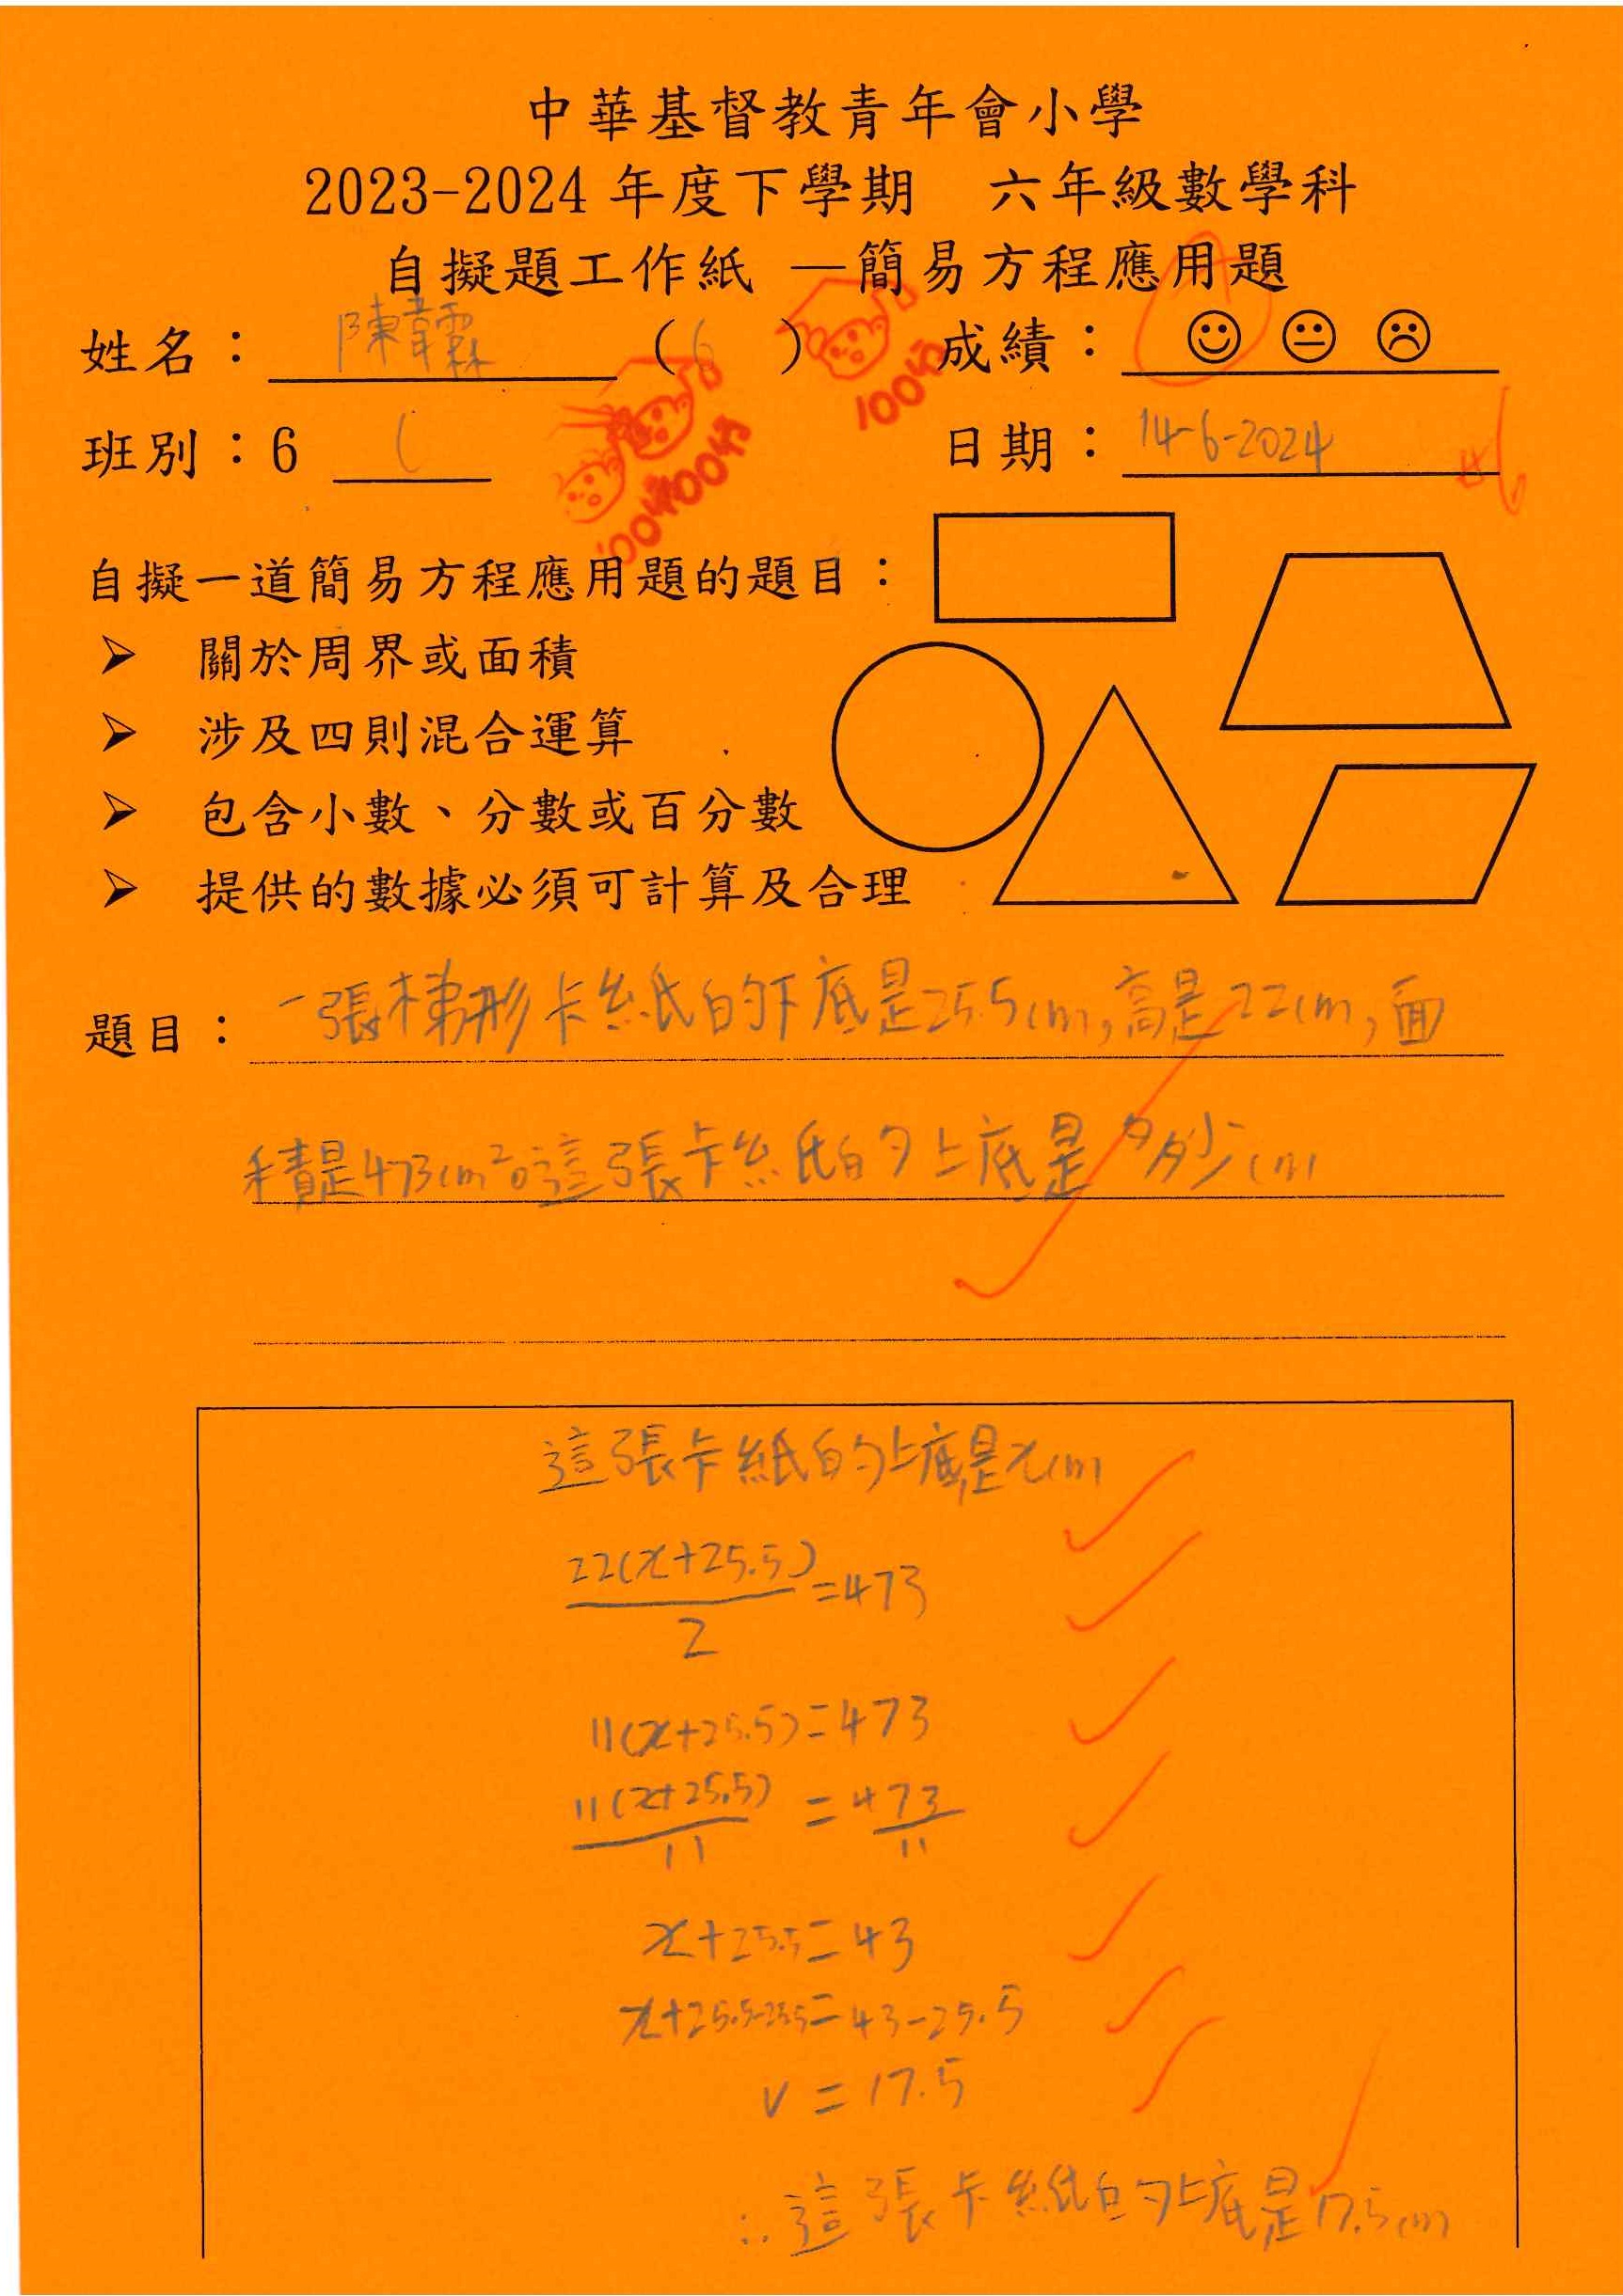 中華基督教青年會小學
2023-2024 年度下學期 六年級數學科
自擬題工作紙 —簡易方程應用題
姓名： 陳韋霖 ( 6 ) 成績：
100分
班別：6 C 日期： 14-6-2024
100分100分
自擬一道簡易方程應用題的題目：
➢ 關於周界或面積
➢ 涉及四則混合運算
➢ 包含小數、分數或百分數
➢ 提供的數據必須可計算及合理
題目： 一張梯形卡紙的下底是25.5cm,高是22cm,面
積是473cm²。這張卡紙的上底是多少cm
這張卡紙的上底是xcm
22(x+25.5)/2=473
11(x+25.5)=473
11(x+25.5)/11 = 473/11
x+25.5=43
x+25.5-25.5=43-25.5
v=17.5
∴這張卡紙的上底是17.5cm